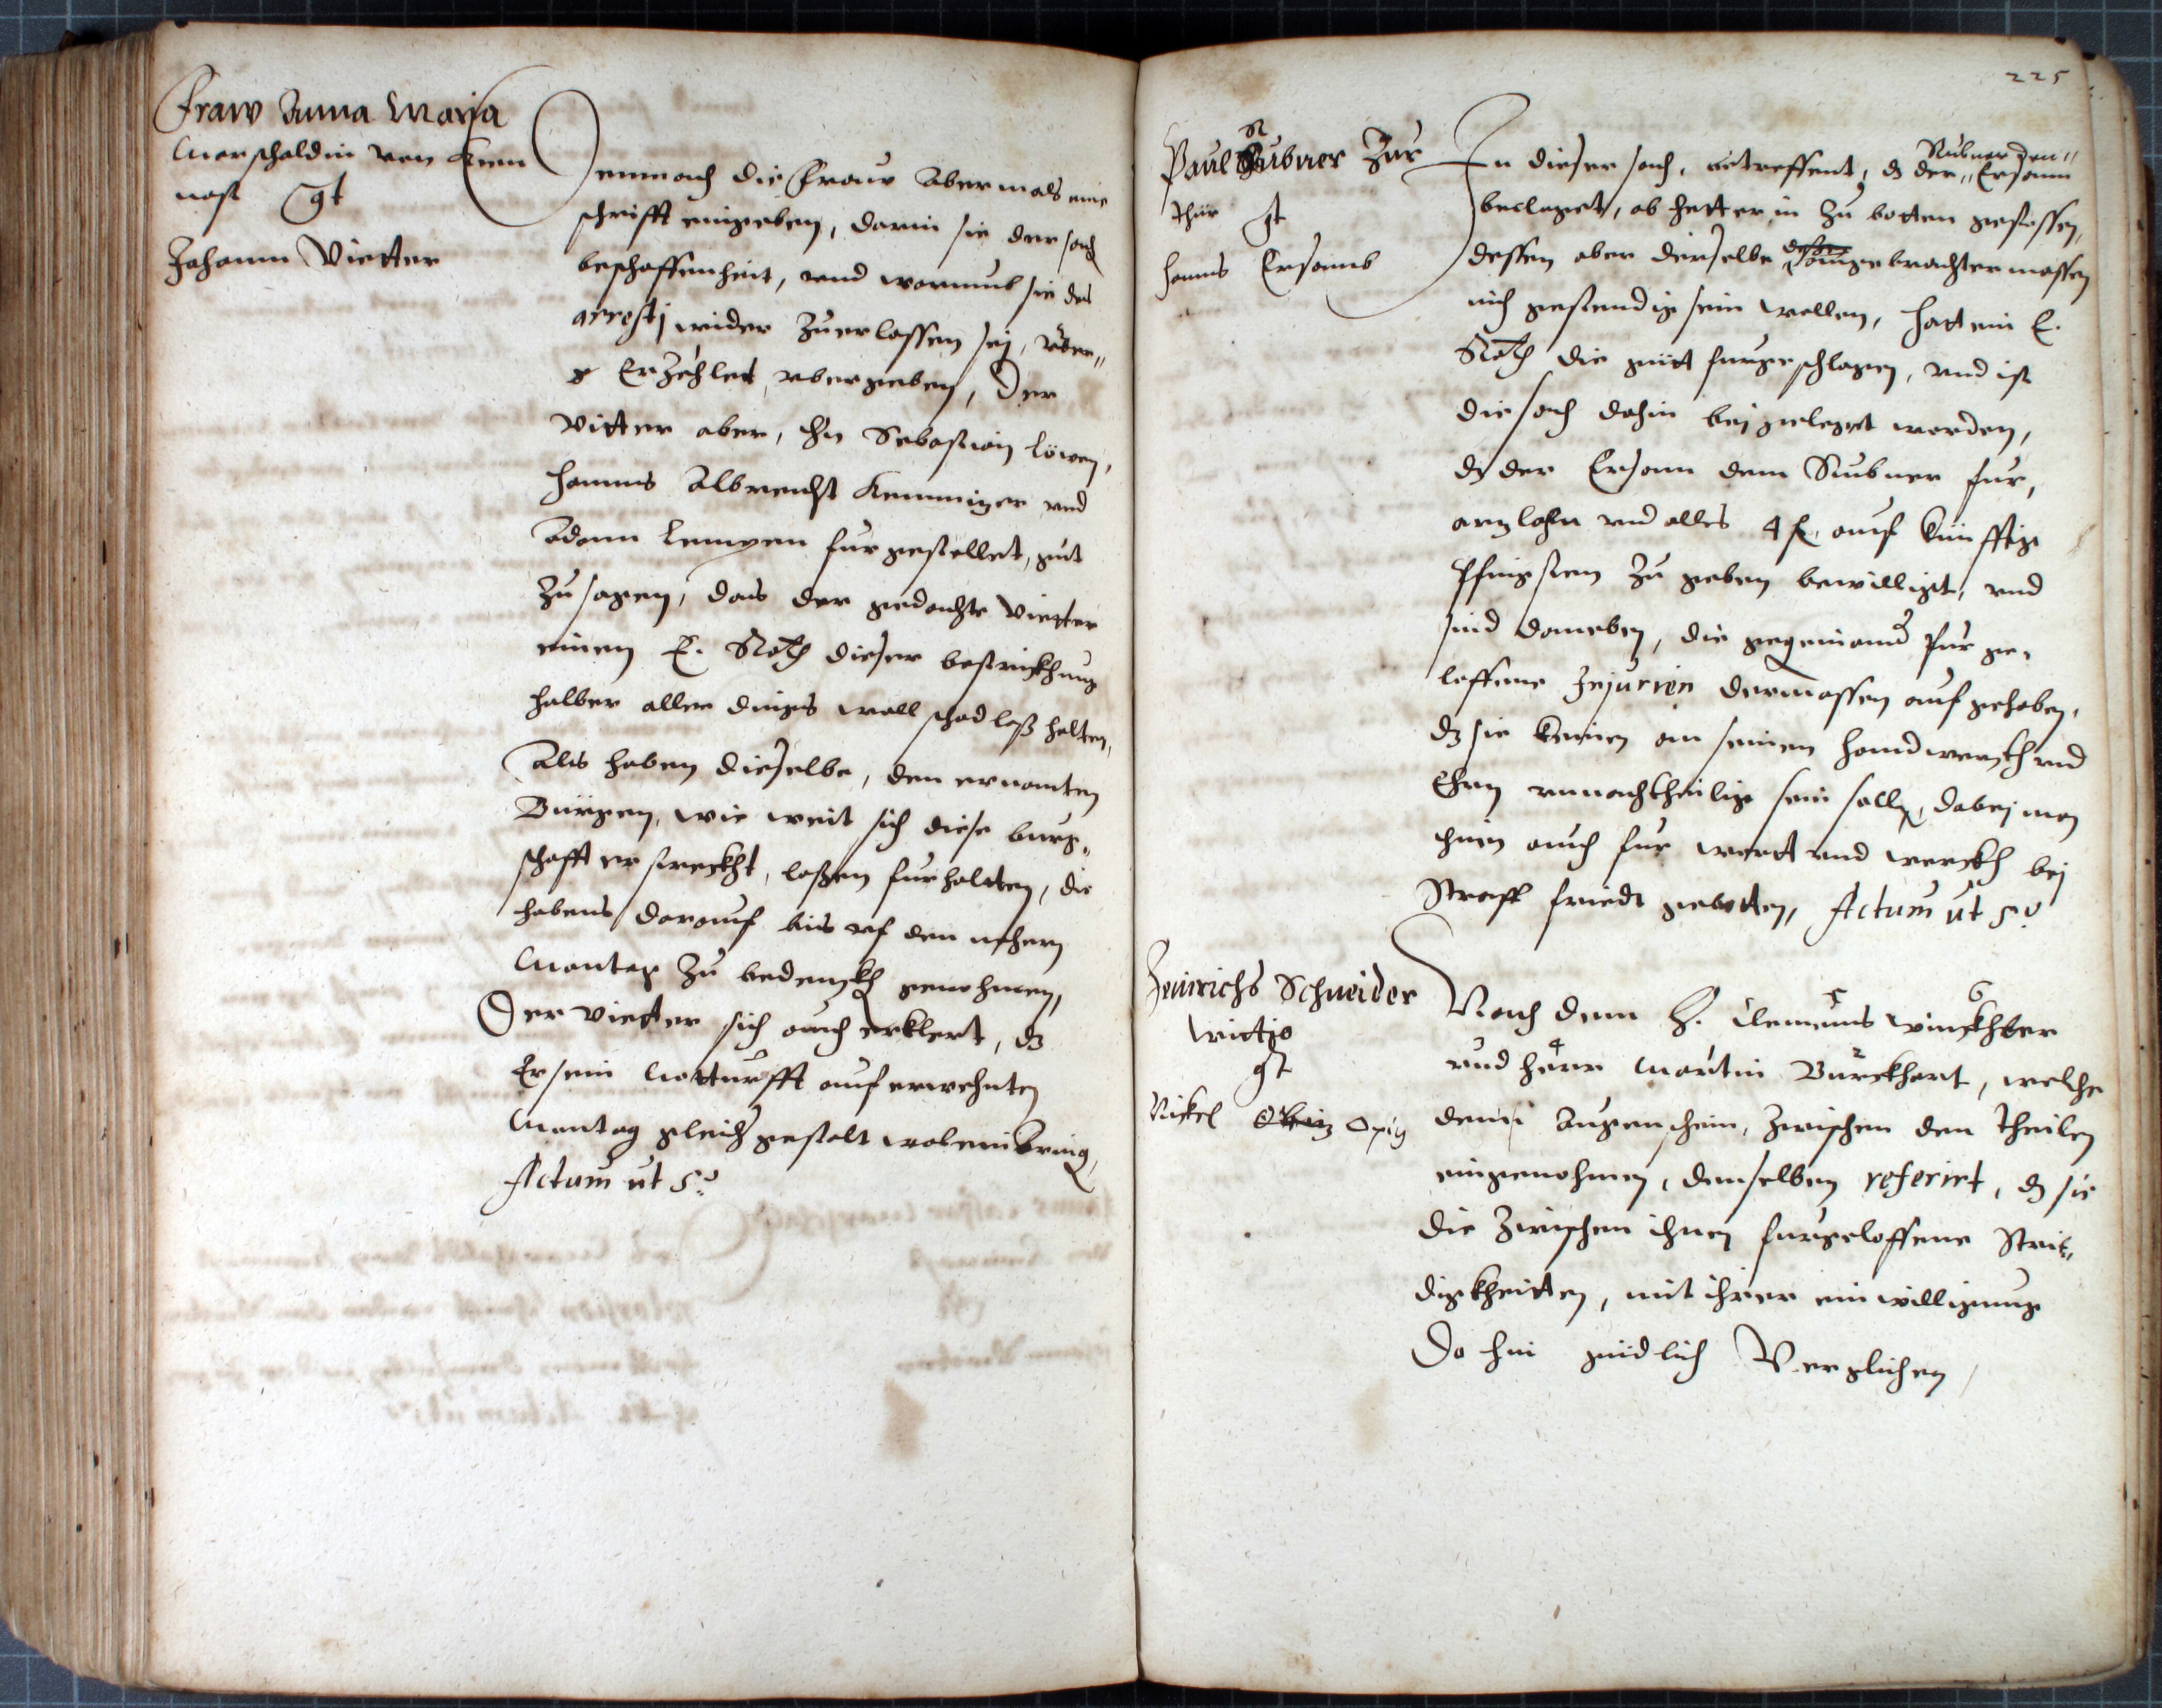 Fraw Anna Maria
Marschaldin von
gt
Johann Vietter
Demnach die Fraw Abermals eine
schrifft eingeben, darin sie der sach
beschaffenheit, vnd warumb sie des
arresti wider zuerlassen sej,
Erzehlet vbergeben, Der
Vitter aber, Sebastian Löwen,
Hanns Albrecht Kemmizer vnd
Adam fur gestellet, gut
zusagen, das der gedachte Vietter
einen E. Rath dieser bestrickhung
halber aller dings woll schadloß halten,
Als haben dieselbe, den ernanten
Bürgen, wie weit sich diese burg„
schafft erstreckht, laßen furhalten, die
habens darauf bis vf den
Montag zu bedenckh genohmen,
Der Vietter sich auch erklert, dz
Er sein Notturfft auf erwehnten
Montag gleichgestalt wol einbring,
Actum ut sa.
225
Paul Rubner zur
thür gt
Hanns Ersamb
Rubner den„
In dieser sach, betreffent, dz der„ Ersamb
beclaget, ob hett er in zu botten gestossen,
dessen aber derselbe gebrachtermassen
nich gestendig sein wollen, hatt ein E.
Rath die gütt furgeschlagen, vnd ist
die sach dahin beij gelegt worden,
dz der Ersam dem Rubner fur,
arzlohn vnd alles 4 fl, auf künfftig
Pfingsten zu geben bewilligt, vnd
sind daneben, die gegeneinand fur ge„
loffene Injurien dermassen aufgehoben,
dz sie keinen an seinen handwerckh vnd
Ehrn vnnachtheilig sein soll, dabej man
ihnen auch fur wortt vnd werckh bej
Straff friedt gebotten, Actum ut sa.
Heinrichs Schneider
wittib
gt
Nickel Opiz
Nach dem H. Clemens winckhler
vnd herr Martin Burckhart, welche
denn Augenschein, zwischen den theilen
eingenohmen, denselben referirt, dz sie
die zwischen ihnen furgeloffene Strit„
digkheitten, mit ihrer einwilligung
Dahin güdlich Verglichen,